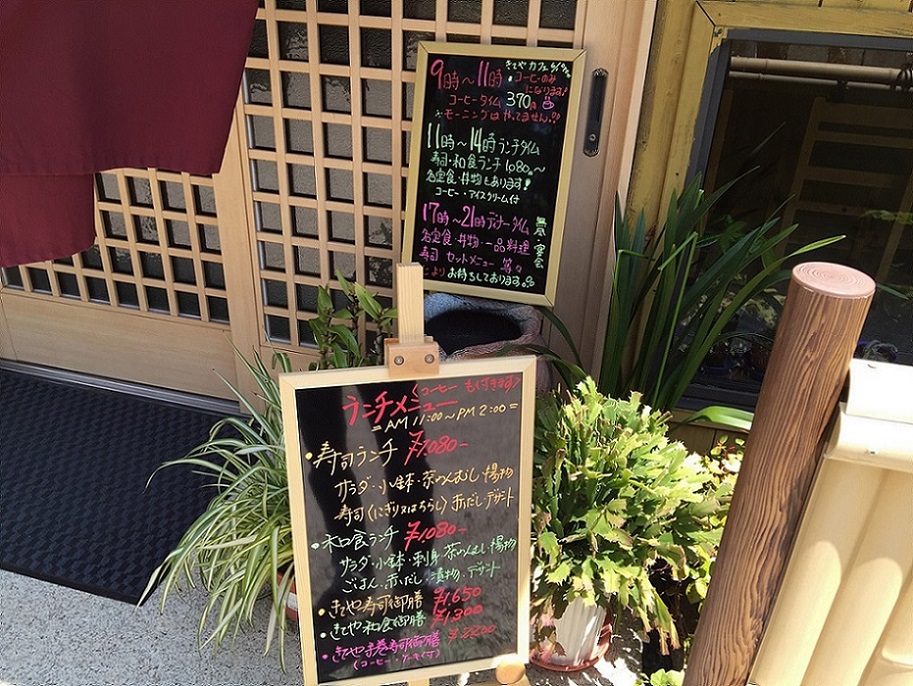 きてやカフェ
9時〜11時 ・コーヒーのみ
になります!
コーヒータイム 370円
モーニングはやってません
11時〜14時 ランチタイム
寿司・和食ランチ 1,080円〜
各定食・丼物もあります!
コーヒー・アイスクリーム付
17時〜21時 ディナータイム
各定食・丼物・一品料理
寿司 セットメニュー 等々
によりお待ちしております。
宴会
ランチメニュー
(コーヒーも付きます)
=AM 11:00〜PM 2:00=
・寿司ランチ ¥1,080-
サラダ・小鉢・茶わんむし・揚物
寿司(にぎり又はちらし)赤だし・デザート
・和食ランチ ¥1,080-
サラダ・小鉢・刺身・茶わんむし・揚物
ごはん・赤だし・漬物・デザート
・きてや寿司御膳 ¥1650
・きてや和食御膳 ¥1,300
・きてや手巻寿司御膳 ¥2200
(コーヒー・ケーキ付)